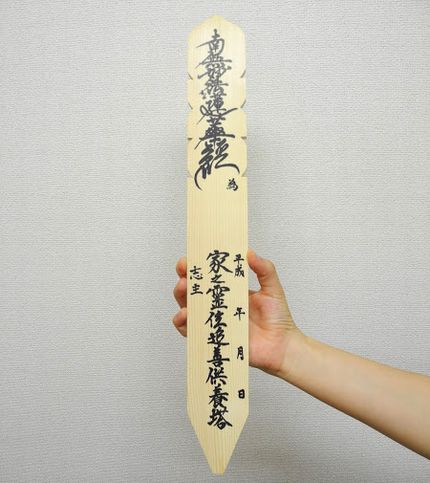 南無妙法蓮華經
為
平成 年 月 日
家之靈位追善供養塔
志主